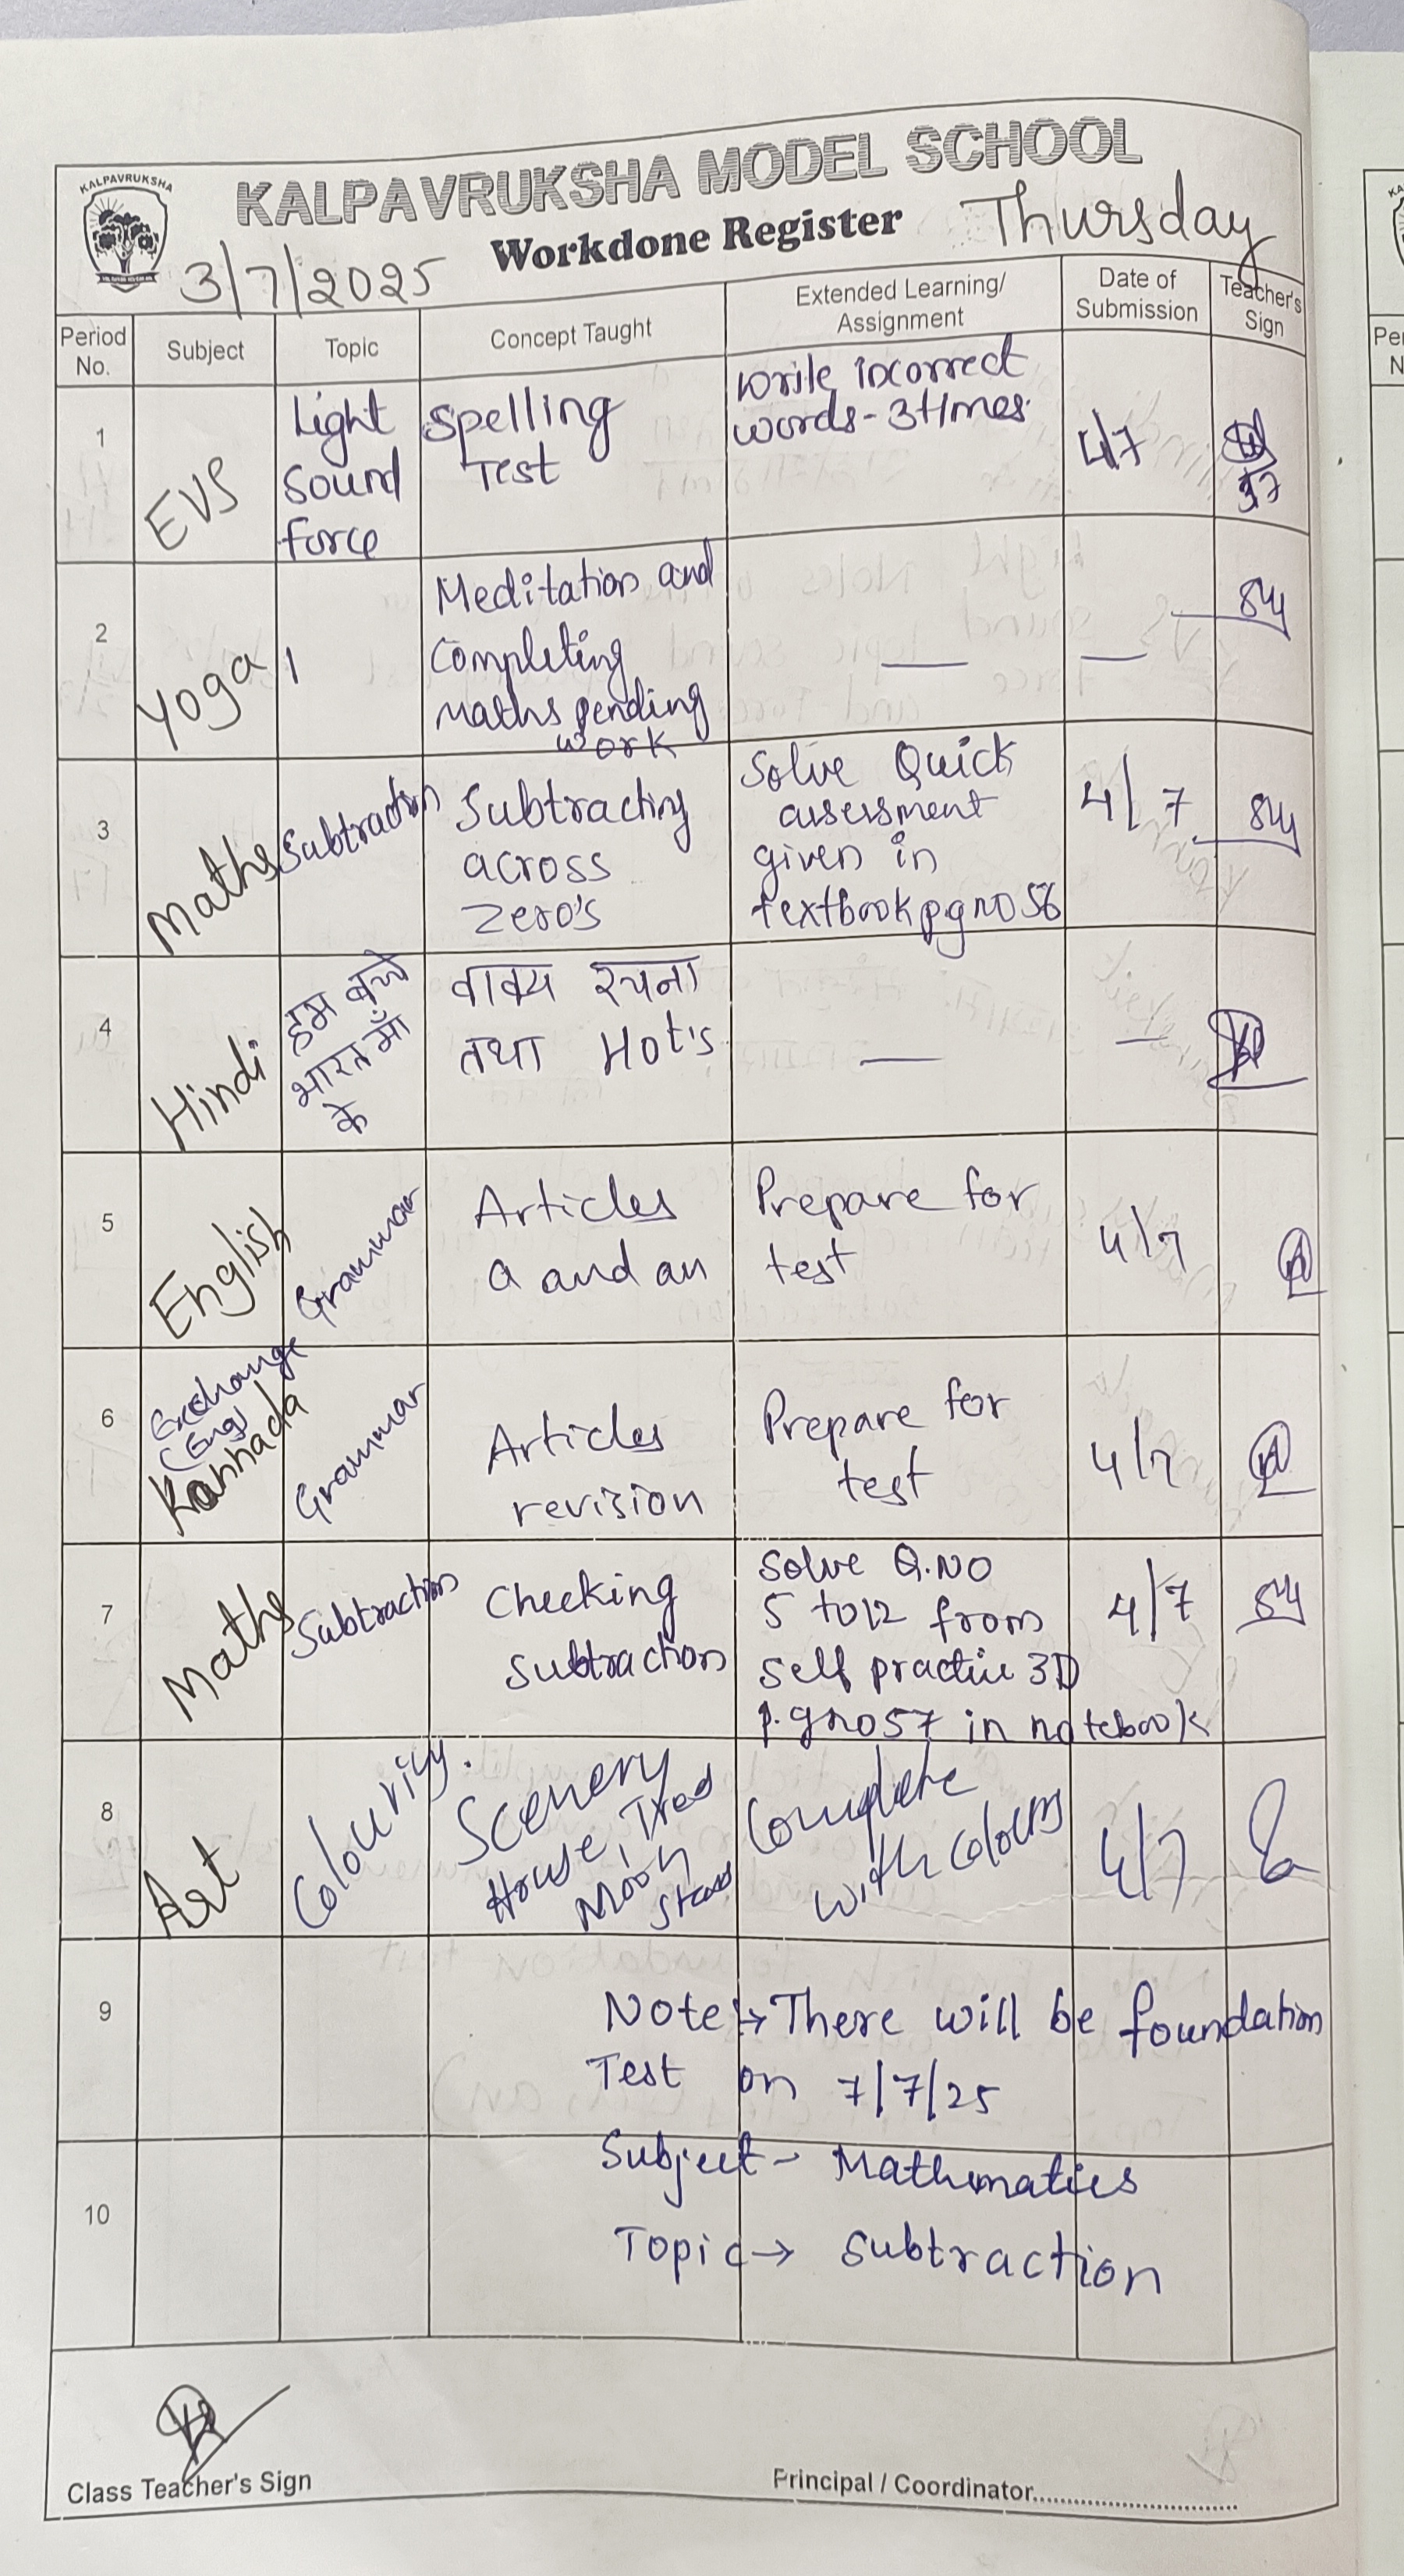 KALPAVRUKSHA
KALPAVRUKSHA MODEL SCHOOL
Workdone Register
Thursday
3/7/2025
Period No.
Subject
Topic
Concept Taught
Extended Learning/
Assignment
Date of
Submission
Teacher's
Sign
1
EVS
Light
Sound
force
Spelling
Test
Write incorrect
words - 3 times.
4/7
2
Yoga
Meditation and
Completing
Maths pending
work
3
Maths
Subtraction
Subtracting
across
zero's
Solve Quick
assessment
given in
textbook pg no 56
4/7
4
Hindi
हम बच्चे
भारत माँ
के
वाक्य रचना
तथा Hot's
5
English
Grammar
Articles
a and an
Prepare for
test
4/7
6
Exchange
(Eng)
Kannada
Grammar
Articles
revision
Prepare for
test
4/7
7
Maths
Subtraction
Checking
subtraction
Solve Q.NO
5 to 12 from
self practice 3D
p.g no 57 in notebook
4/7
8
Art
Colouring.
Scenery
House, Trees
Moon
Stars
Complete
with colours
4/7
9
Note:→ There will be foundation
Test on 7/7/25
10
Subject - Mathematics
Topic → Subtraction
Class Teacher's Sign
Principal / Coordinator